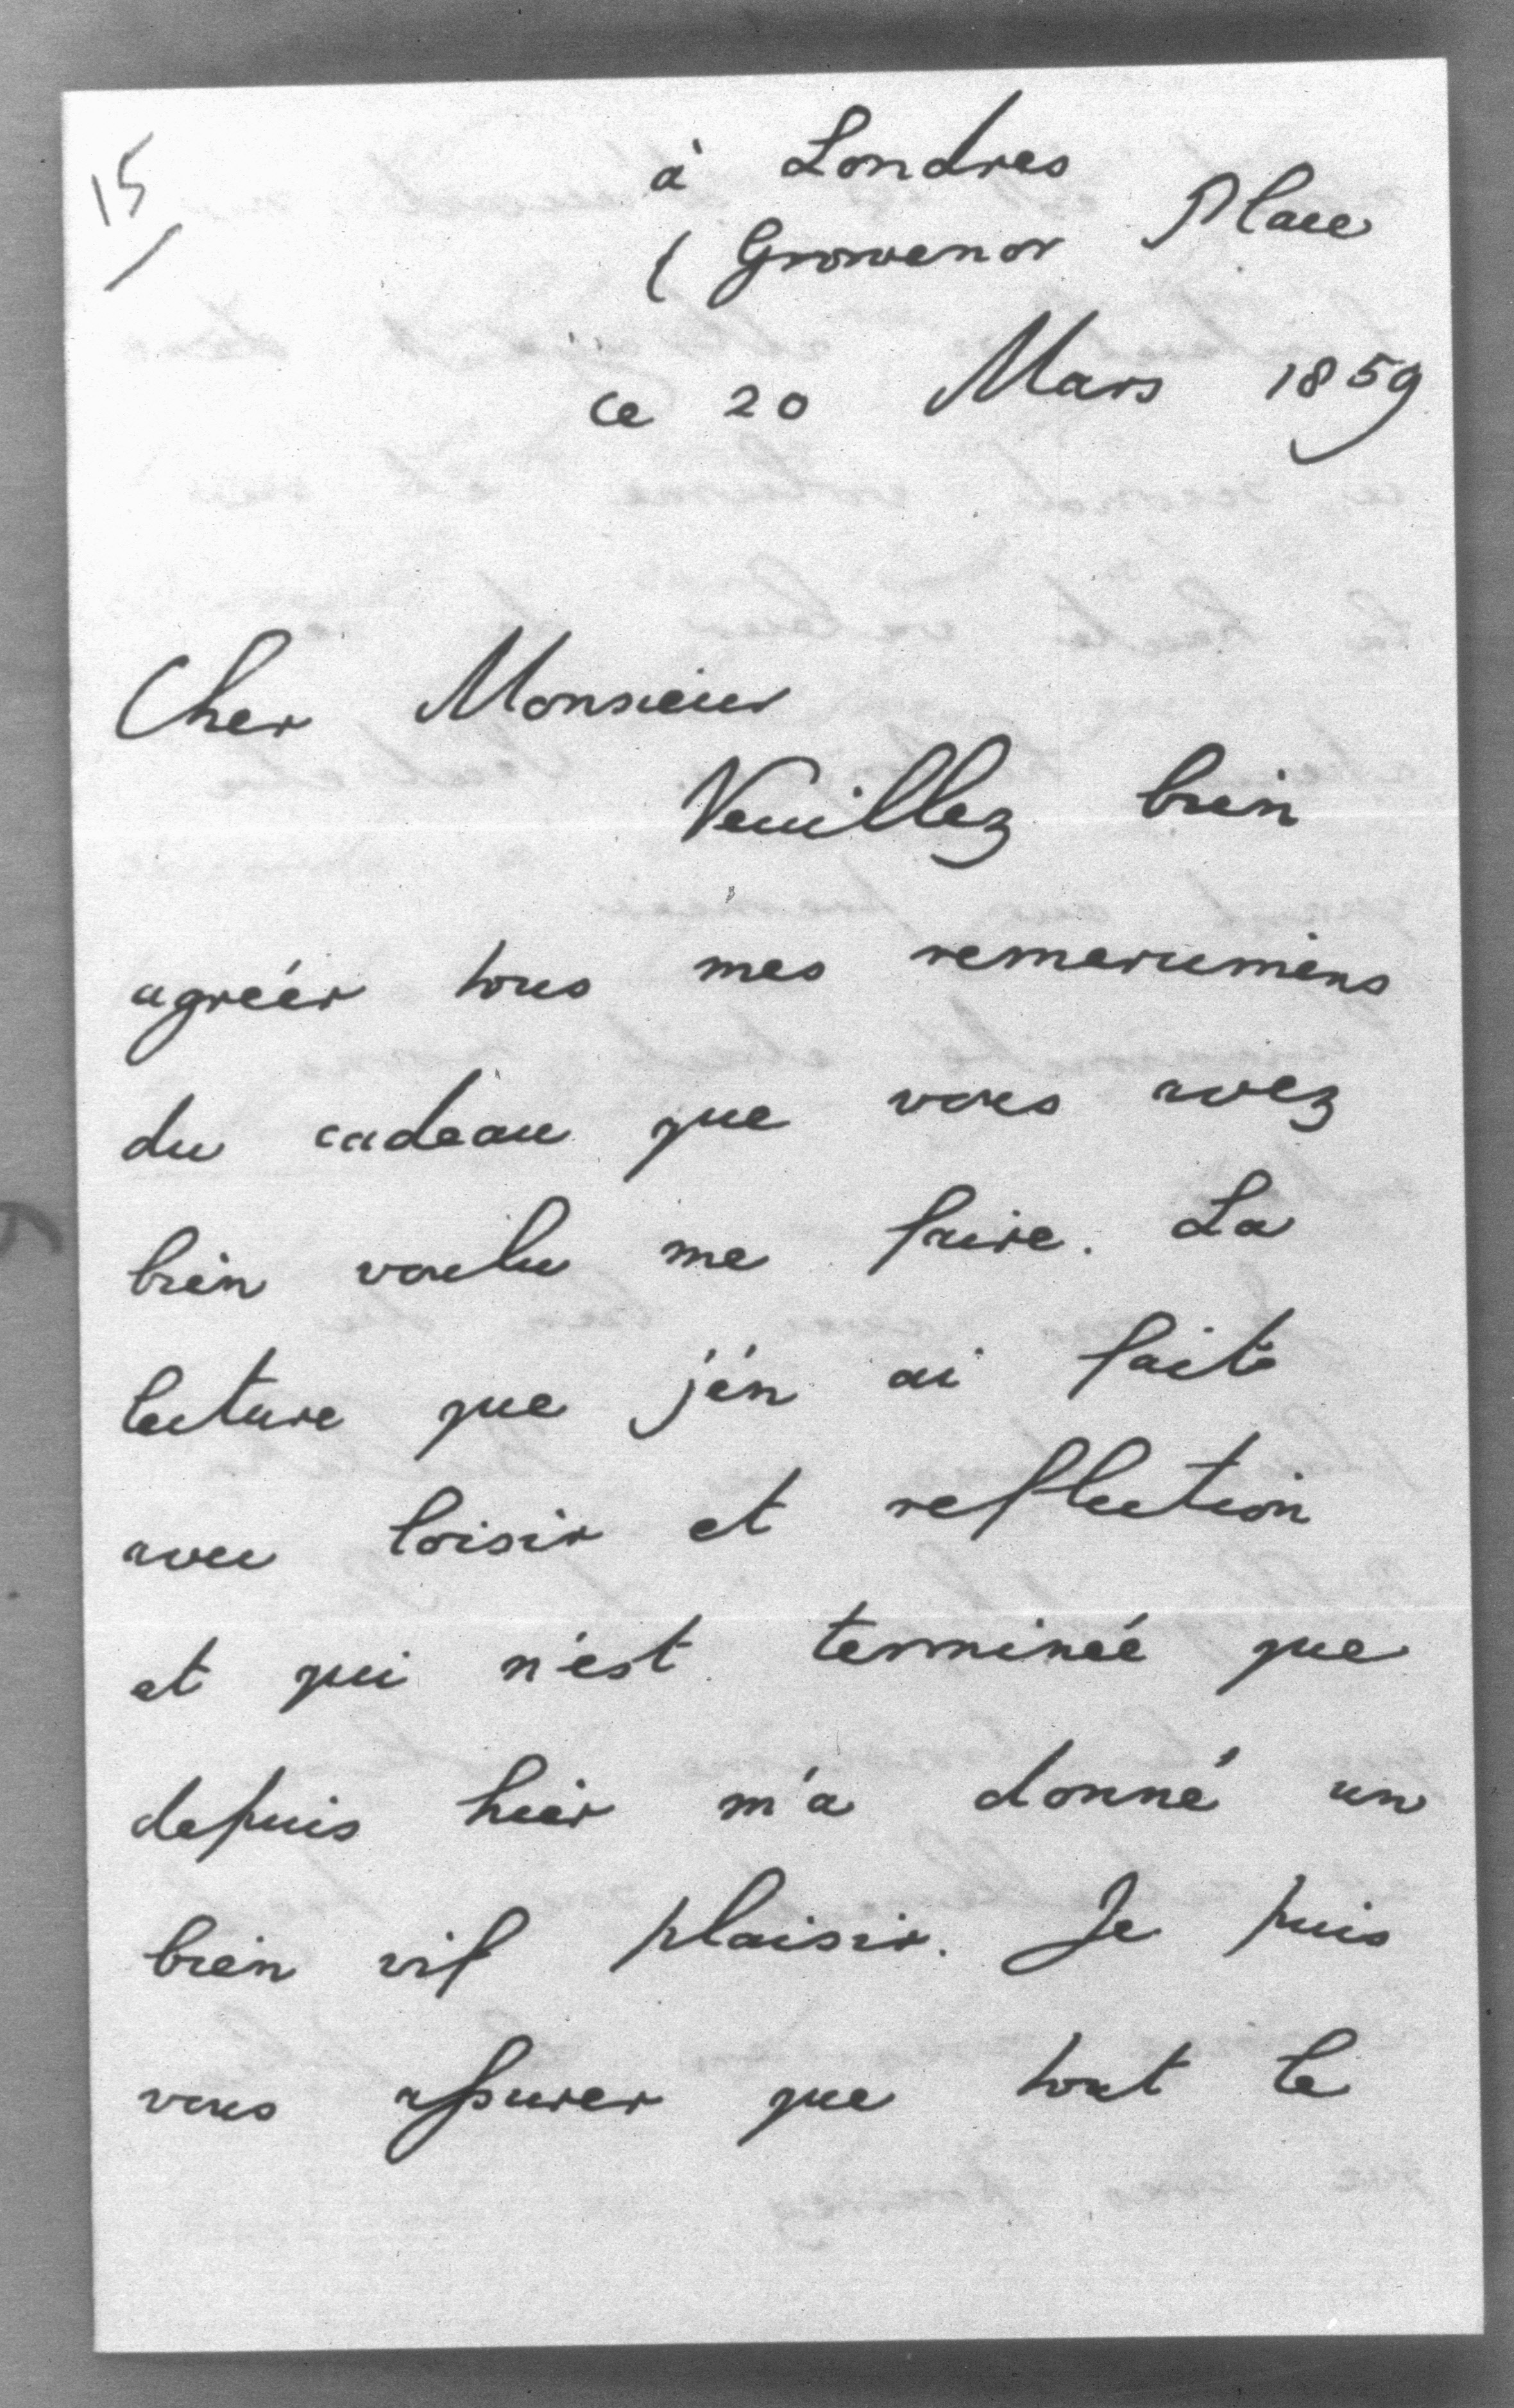 15
à Londres
( Grosvenor Place
ce 20 Mars 1859
Cher Monsieur
Veuillez bien
agréer tous mes remercimens
du cadeau que vous avez
bien voulu me faire. La
lecture que j'en ai faite
avec loisir et reflection
et qui n'est terminée que
depuis hier m'a donné un
bien vif plaisir. Je puis
vous assurer que tout le